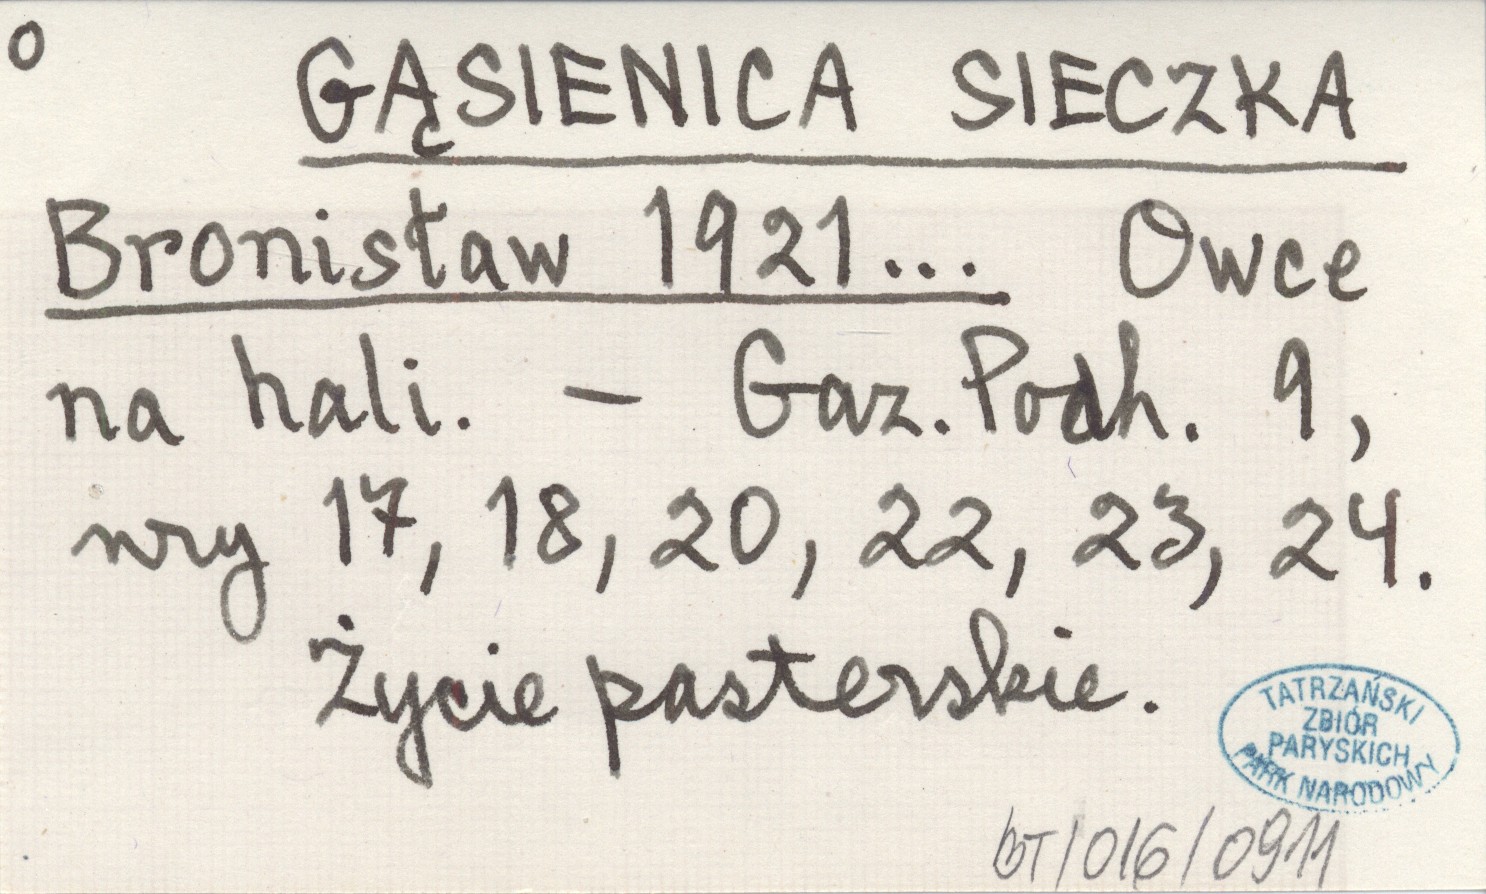 o
GĄSIENICA SIECZKA
Bronisław 1921... Owce
na hali. – Gaz. Podh. 9,
nry 17, 18, 20, 22, 23, 24.
Życie pasterskie.
TATRZAŃSKI
ZBIÓR
PARYSKICH
PARK NARODOWY
BT/016/0911